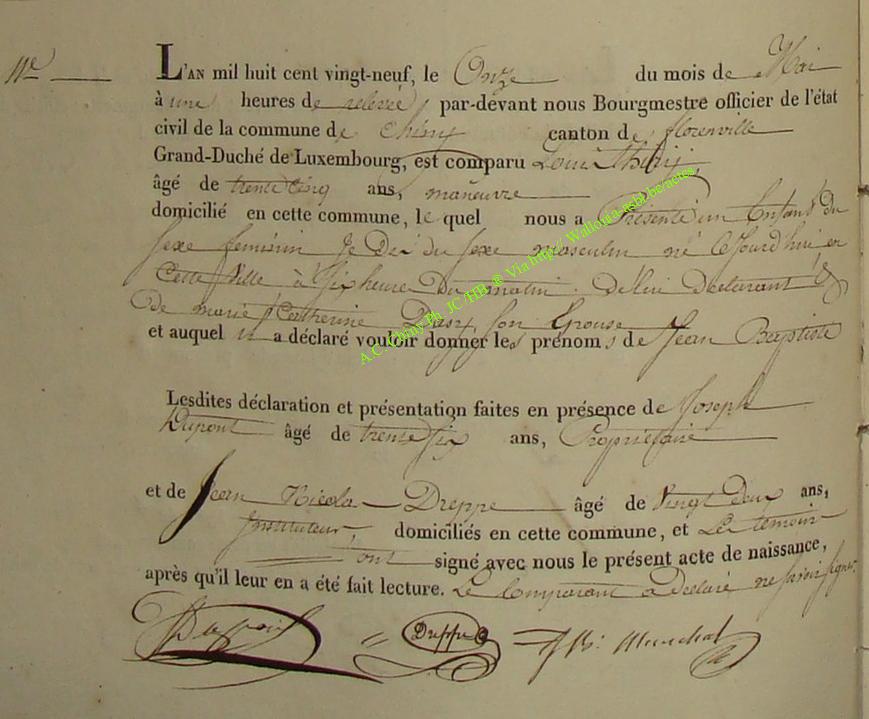 11e
L'AN mil huit cent vingt-neuf, le Onze du mois de Mai
à une heures de relevée, par-devant nous Bourgmestre officier de l'état
civil de la commune de Chiny canton de florenville
Grand-Duché de Luxembourg, est comparu Louis Thiry,
âgé de trente cinq ans, manœuvre
domicilié en cette commune, le quel nous a Présenté un Enfant du
sexe feminin je Dis du sexe masculin né cejourd'hui en
Cette Ville à six heure Du matin. De lui Declarant &
de marie Catherine son Epouse
et auquel il a déclaré vouloir donner les prénoms de Jean Baptiste
Lesdites déclaration et présentation faites en présence de Joseph
Dupont âgé de trente six ans, Propriétaire
et de Jean Nicola Dreppe âgé de Vingt Deux ans,
Instituteur, domiciliés en cette commune, et Les temoin
ont signé avec nous le présent acte de naissance,
après qu'il leur en a été fait lecture. Le Comparant a declaré ne savoir signer
Dreppe
A.C. Chiny Ph JC /HB ® Via http://Wallonia-asbl.be/actes